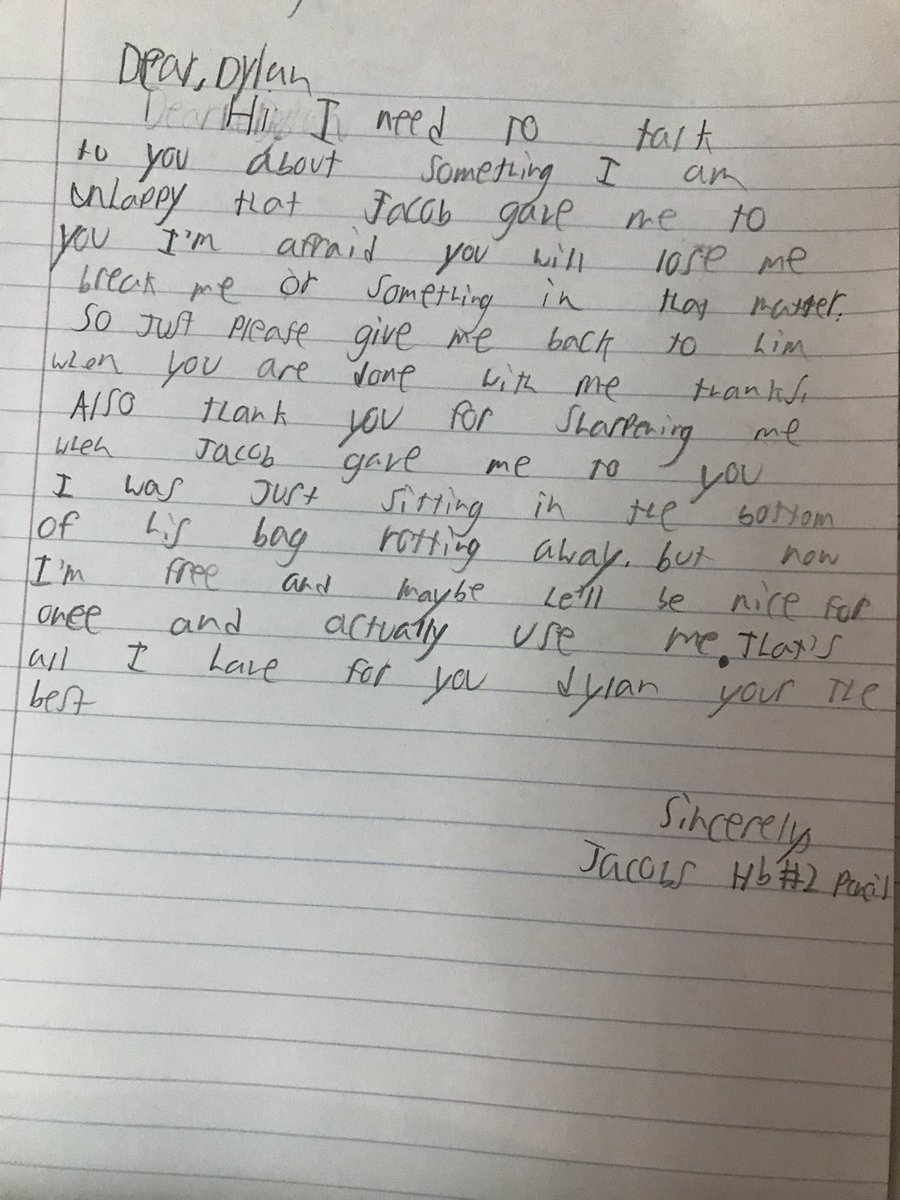 Dear, Dylan
Hi. I need to talk
to you about something I am
unhappy that Jacob gave me to
you I'm afraid you will lose me
break me or something in that matter.
So Just Please give me back to him
when you are done with me thanks.
Also thank you for sharpening me
when Jacob gave me to you
I was Just sitting in the bottom
of his bag rotting away. but now
I'm free and maybe he'll be nice for
once and actually use me. That's
all I have for you dylan your the
best
Sincerely
Jacobs Hb #2 Pencil